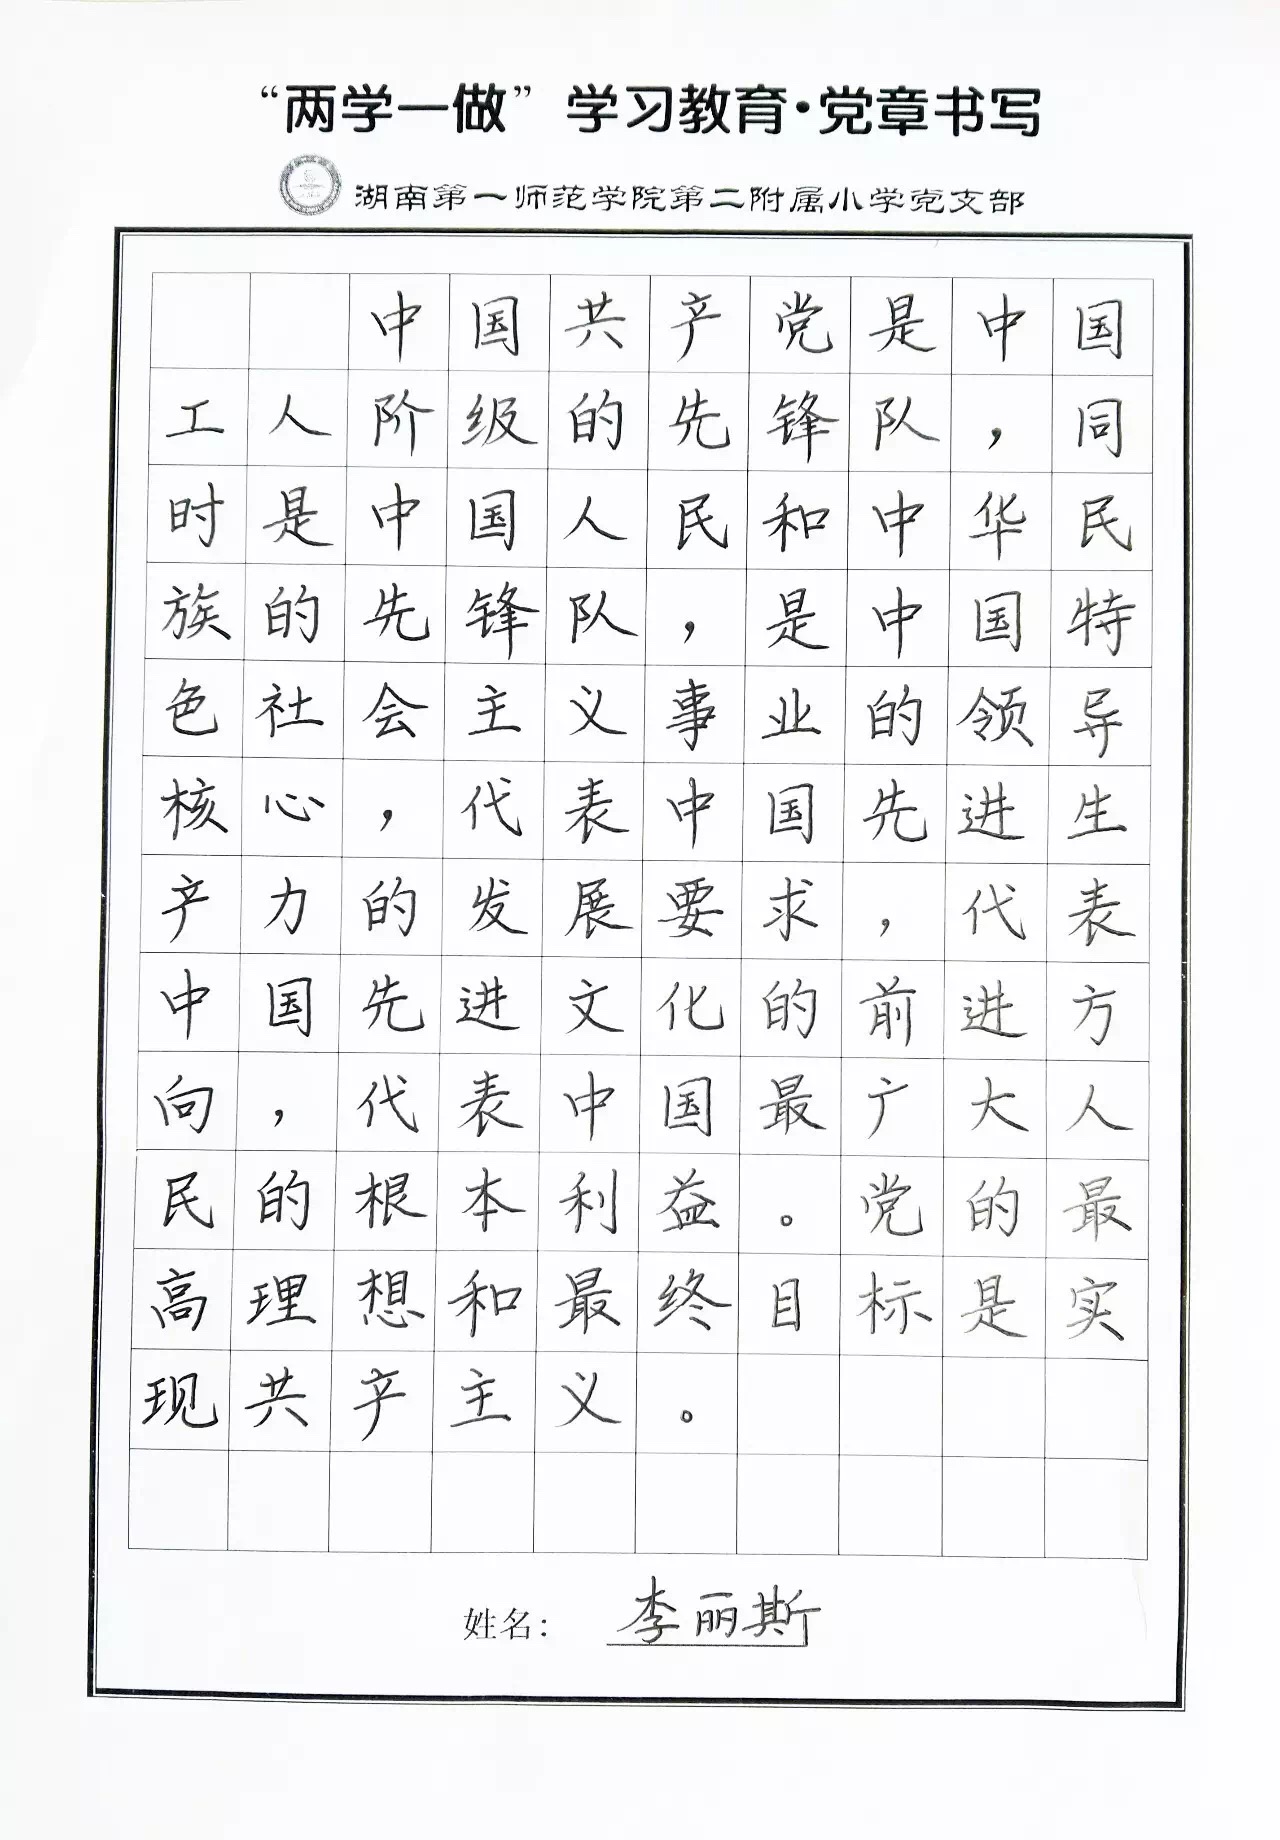 “两学一做”学习教育·党章书写
湖南第一师范学院第二附属小学党支部
中国共产党是中国
工人阶级的先锋队，同
时是中国人民和中华民
族的先锋队，是中国特
色社会主义事业的领导
核心，代表中国先进生
产力的发展要求，代表
中国先进文化的前进方
向，代表中国最广大人
民的根本利益。党的最
高理想和最终目标是实
现共产主义。
姓名：李丽斯